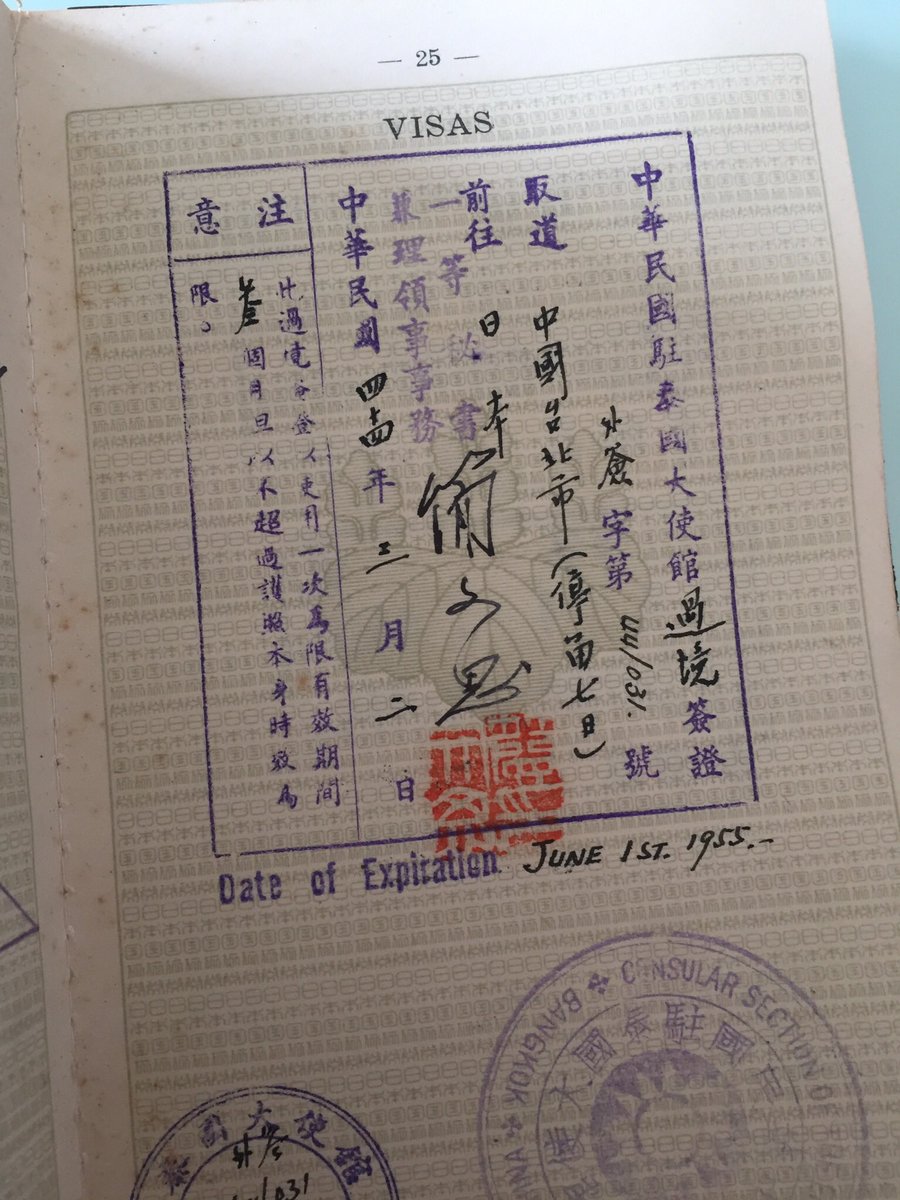 — 25 —
VISAS
中華民國駐泰國大使館過境簽證
外簽字第44/031.號
取道 中國台北市(停留七日)
前往 日本
一等秘書
兼理領事事務
中華民國四十四年三月二日
注意
此過境簽證以使用一次為限有效期間
叁個月但以不超過護照本身時效為
限。
Date of Expiration. JUNE 1ST. 1955.-
CONSULAR SECTION OF
BANGKOK
駐泰國大使館
大使館
外簽
/031